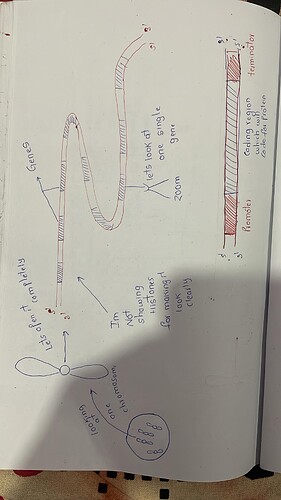 looking
at
one
chromosome
Lets open it completely
Genes
5'
3'
I'm
Not
showing
Histones
for making it
look
clearly
3'
5'
Lets look at
one single
gene
zoom
Promoter
Coding region
which will
code for protein
terminator
5'
3'
3'
5'